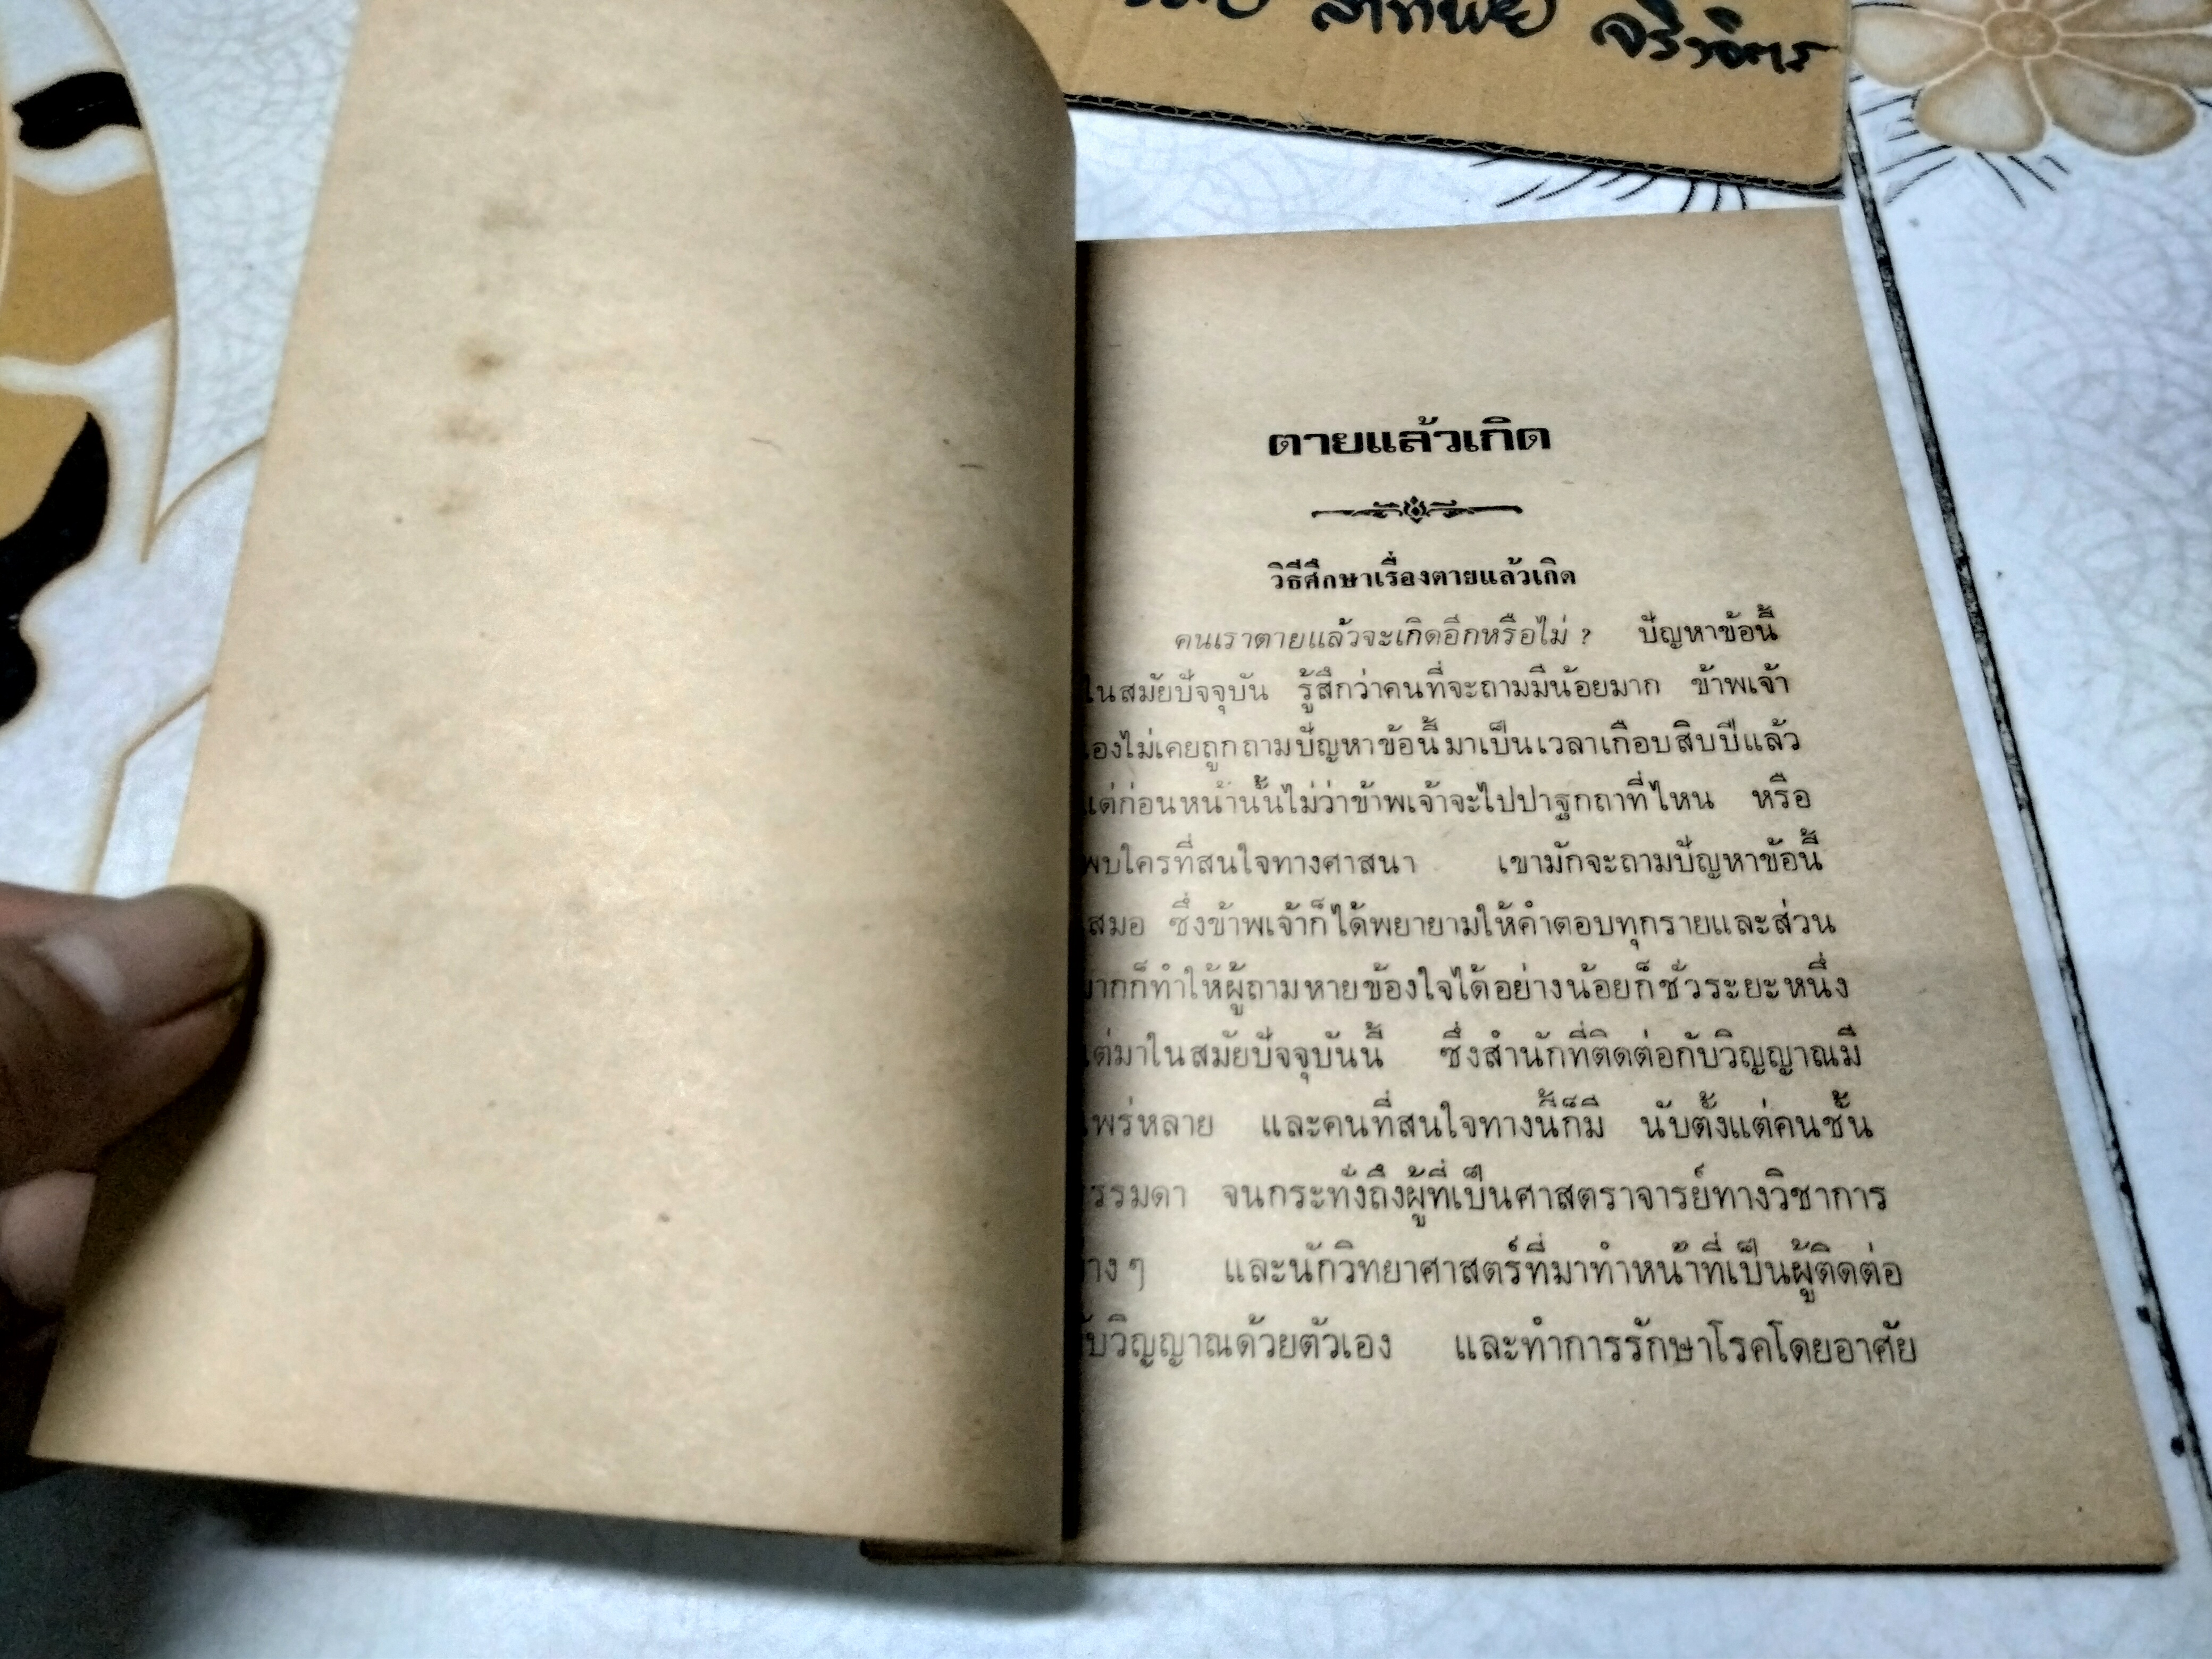 ลาภทิพย์ จริงจิตร
ตายแล้วเกิด
วิธีศึกษาเรื่องตายแล้วเกิด
คนเราตายแล้วจะเกิดอีกหรือไม่ ? ปัญหาข้อนี้
ในสมัยปัจจุบัน รู้สึกว่าคนที่จะถามมีน้อยมาก ข้าพเจ้า
เองไม่เคยถูกถามปัญหาข้อนี้มาเป็นเวลาเกือบสิบปีแล้ว
แต่ก่อนหน้านั้นไม่ว่าข้าพเจ้าจะไปปาฐกถาที่ไหน หรือ
พบใครที่สนใจทางศาสนา เขามักจะถามปัญหาข้อนี้
เสมอ ซึ่งข้าพเจ้าก็ได้พยายามให้คำตอบทุกรายและส่วน
มากก็ทำให้ผู้ถามหายข้องใจได้อย่างน้อยก็ชั่วระยะหนึ่ง
แต่มาในสมัยปัจจุบันนี้ ซึ่งสำนักที่ติดต่อกับวิญญาณมี
แพร่หลาย และคนที่สนใจทางนี้ก็มี นับตั้งแต่คนชั้น
ธรรมดา จนกระทั่งถึงผู้ที่เป็นศาสตราจารย์ทางวิชาการ
ต่างๆ และนักวิทยาศาสตร์ที่มาทำหน้าที่เป็นผู้ติดต่อ
กับวิญญาณด้วยตัวเอง และทำการรักษาโรคโดยอาศัย